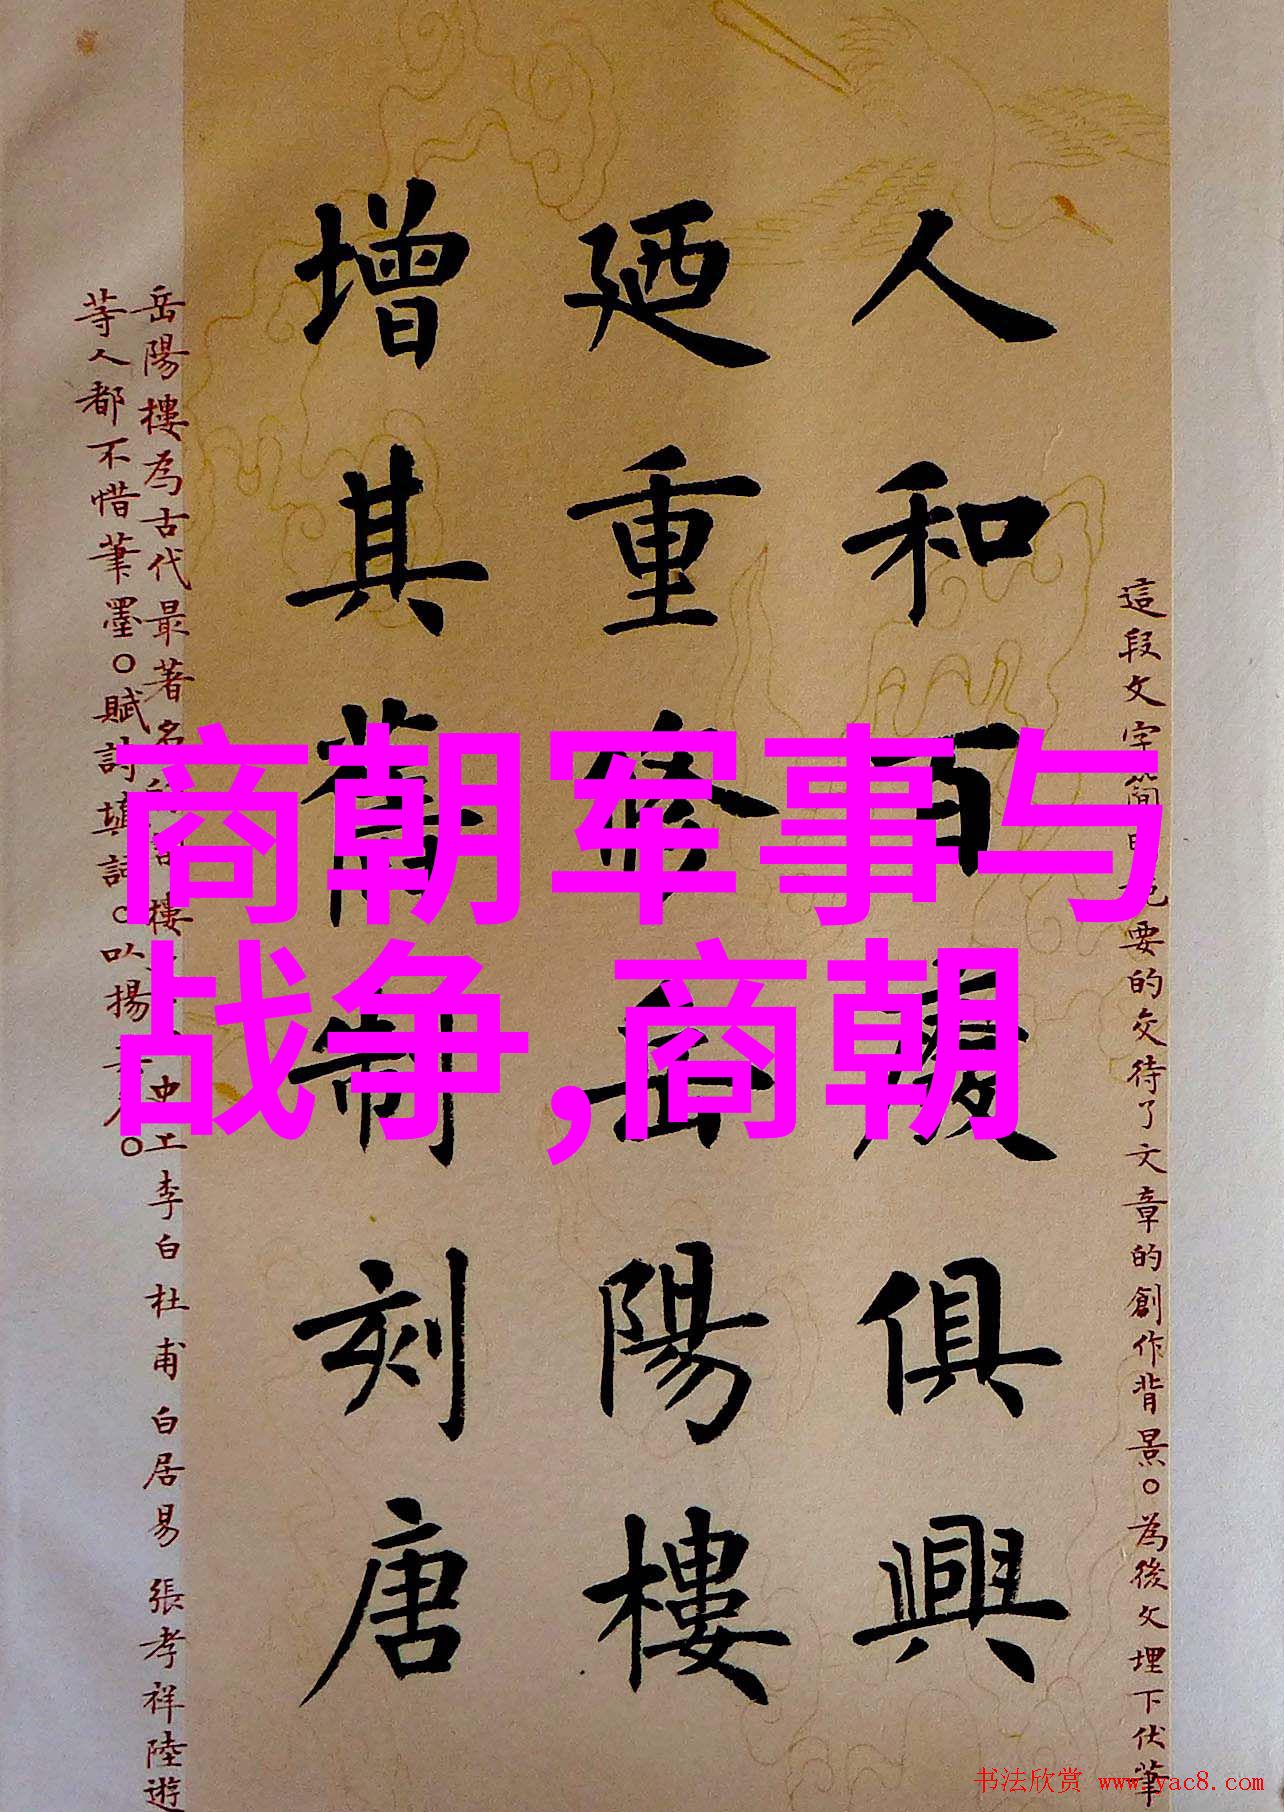 這段文字簡要的交待了文章的創作背景。為後文埋下伏筆
人和百廢俱興
廼重修岳陽樓
增其舊制刻唐
岳陽樓為古代最著名樓李白杜甫白居易張孝祥陸遊
等人都不惜筆墨。賦詩填詞。以揚。
商朝军事与
战争,商朝
书法欣赏 www.yac8.com